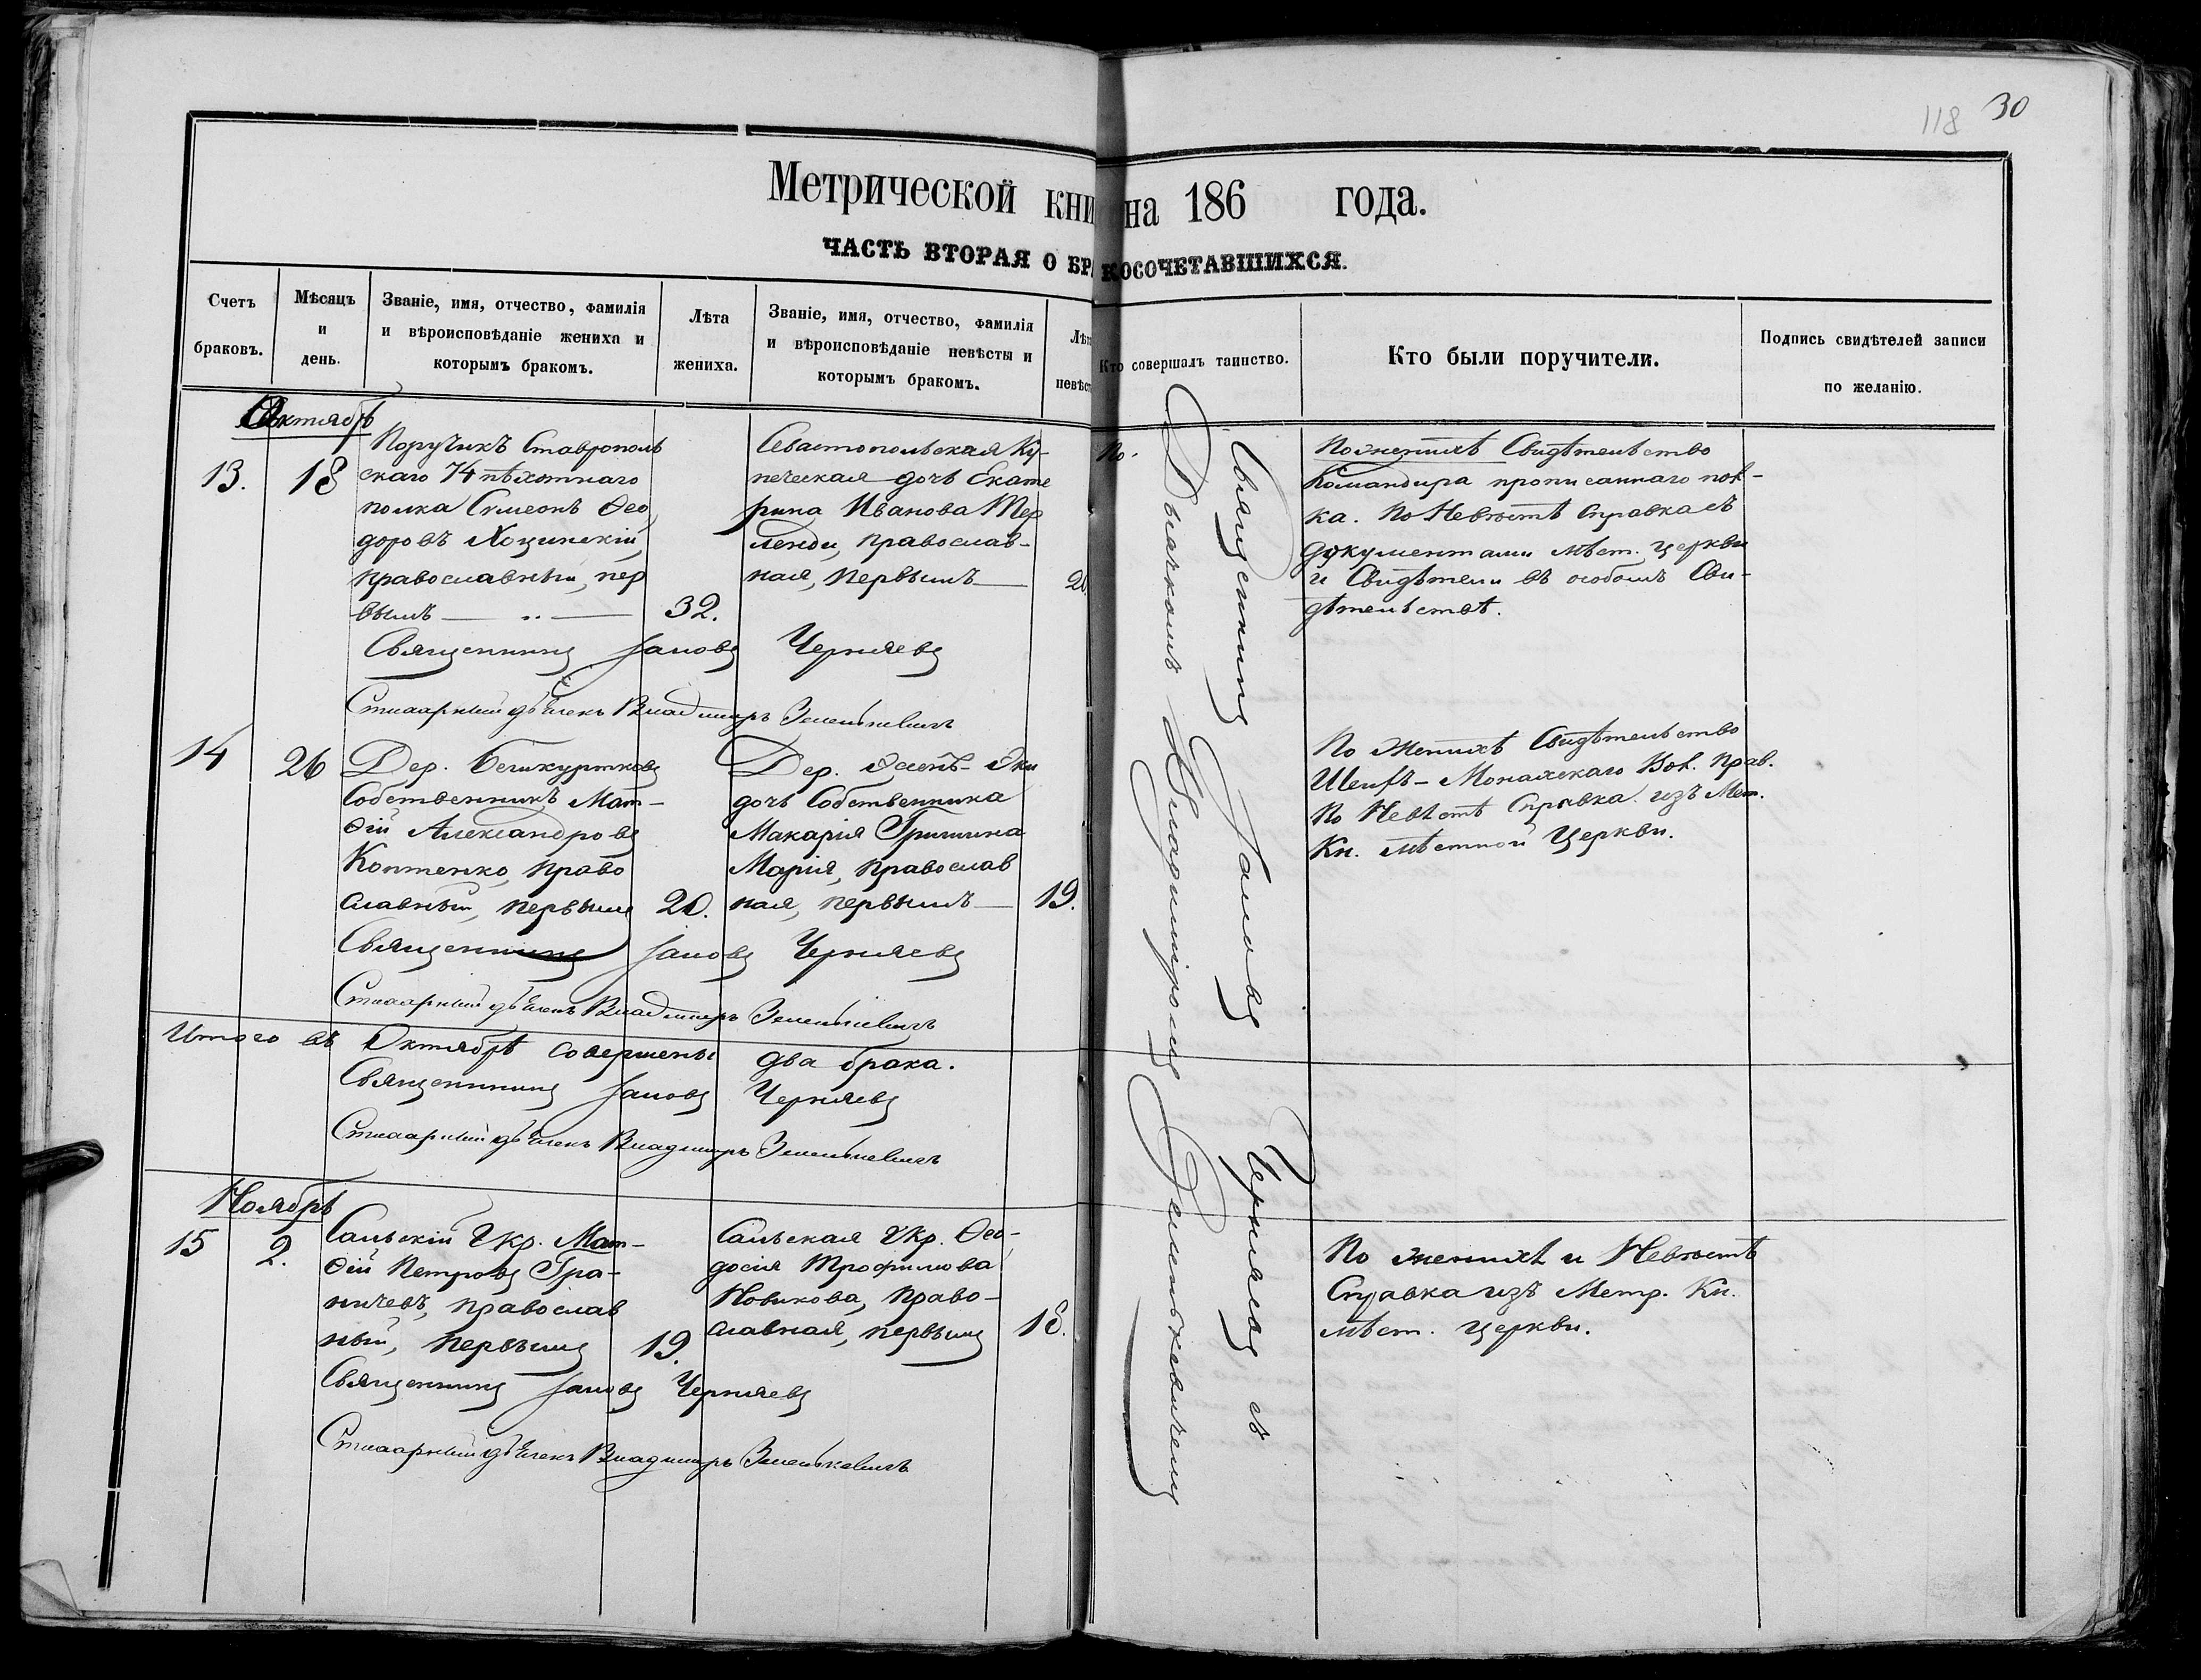 118 30
Метрической кни на 186 года.
ЧАСТЬ ВТОРАЯ О БРАКОСОЧЕТАВШИХСЯ.
Счетъ
браковъ.
Мѣсяцъ
и
день.
Званіе, имя, отчество, фамилія
и вѣроисповѣданіе жениха и
которымъ бракомъ.
Лѣта
жениха.
Званіе, имя, отчество, фамилія
и вѣроисповѣданіе невѣсты и
которымъ бракомъ.
Лѣт
невѣст
Кто совершалъ таинство.
Кто были поручители.
Подпись свидѣтелей записи
по желанію.
Октябрь
13.
18
Поручикъ Ставрополь
скаго 74 пѣхотнаго
полка Симеонъ Ѳео
доровъ Хощинскій,
православный, пер
вымъ
32.
Севастопольская Ку-
печеская дочь Екате
рина Иванова Тер
ленди, православ-
ная, первымъ
По женихѣ Свидѣтельство
Командира прописаннаго пол-
ка. По Невѣстѣ Справка съ
документами мѣст. церкви
и Свидѣтели въ особомъ Сви-
дѣтельствѣ.
Священникъ Іаковъ Черняевъ
Стихарный дьячекъ Владимиръ Зенькевичъ
14
26
Дер.
Собственникъ Мат-
ѳій Александровъ
Коптенко, право
славный, первымъ
20.
Дер.
дочь Собственника
Макарія Гришина
Марія, православ
ная, первымъ
19.
По Женихѣ Свидѣтельство
Шеихъ-Монахскаго Вол. Прав.
По Невѣстѣ Справка изъ Мет.
Кн. мѣстной Церкви.
Священникъ Іаковъ Черняевъ
Стихарный дьячекъ Владимиръ Зенькевичъ
Итого въ Октябрѣ совершены два брака.
Священникъ Іаковъ Черняевъ
Стихарный дьячекъ Владимиръ Зенькевичъ
Ноябрь
15
2.
Сальскій Укр. Мат-
ѳій Петровъ Гра-
ничевъ, православ
ный, первымъ
19.
Сальская Укр. Ѳео-
досія Трофимова
Новикова, право-
славная, первымъ
18.
По женихѣ и Невѣстѣ
Справка изъ Метр. Кн.
мѣст. церкви.
Священникъ Іаковъ Черняевъ
Стихарный дьячекъ Владимиръ Зенькевичъ
Священникъ Іаковъ Черняевъ съ
Дьячкомъ Владиміромъ Зенькевичемъ